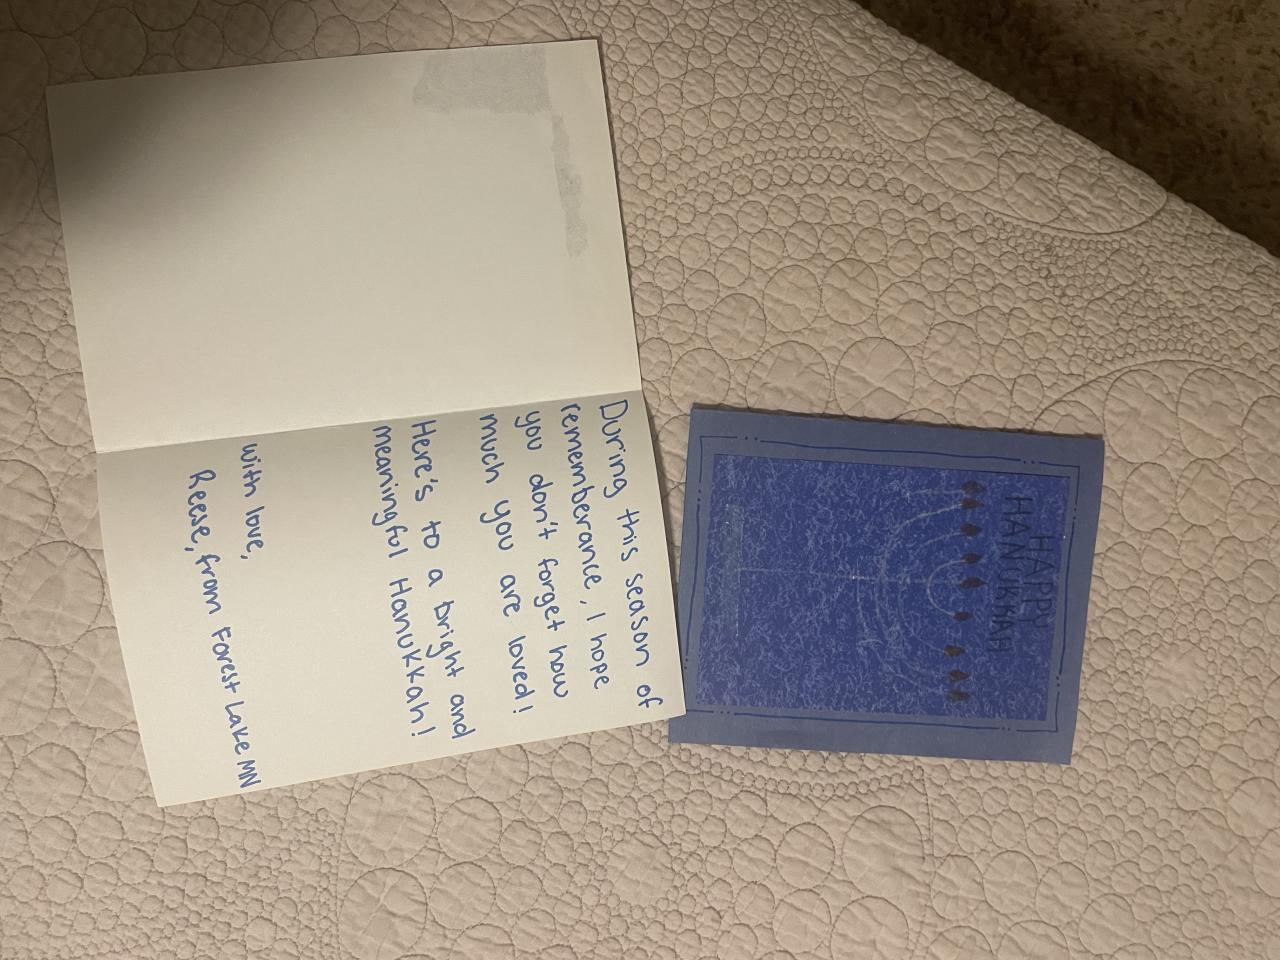 During this season of
rememberance, I hope
you don't forget how
much you are loved!
Here's to a bright and
meaningful Hanukkah!
with love,
Reese, from Forest Lake MN
HAPPY
HANUKKAH